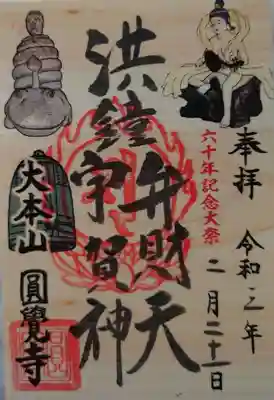 奉拝 令和 年
六十年記念大祭
二月二十 日
洪鐘
弁財天
宇賀神
大本山
圓覺寺